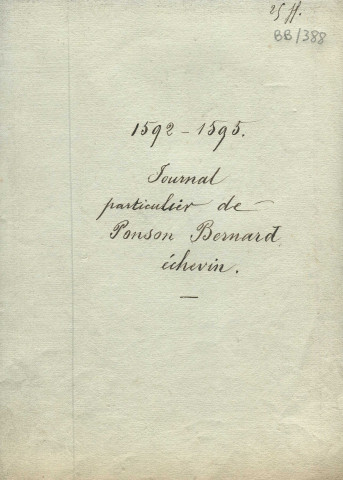 25 ff.
BB/388
1592-1595.
Journal
particulier de
Ponson Bernard
échevin.